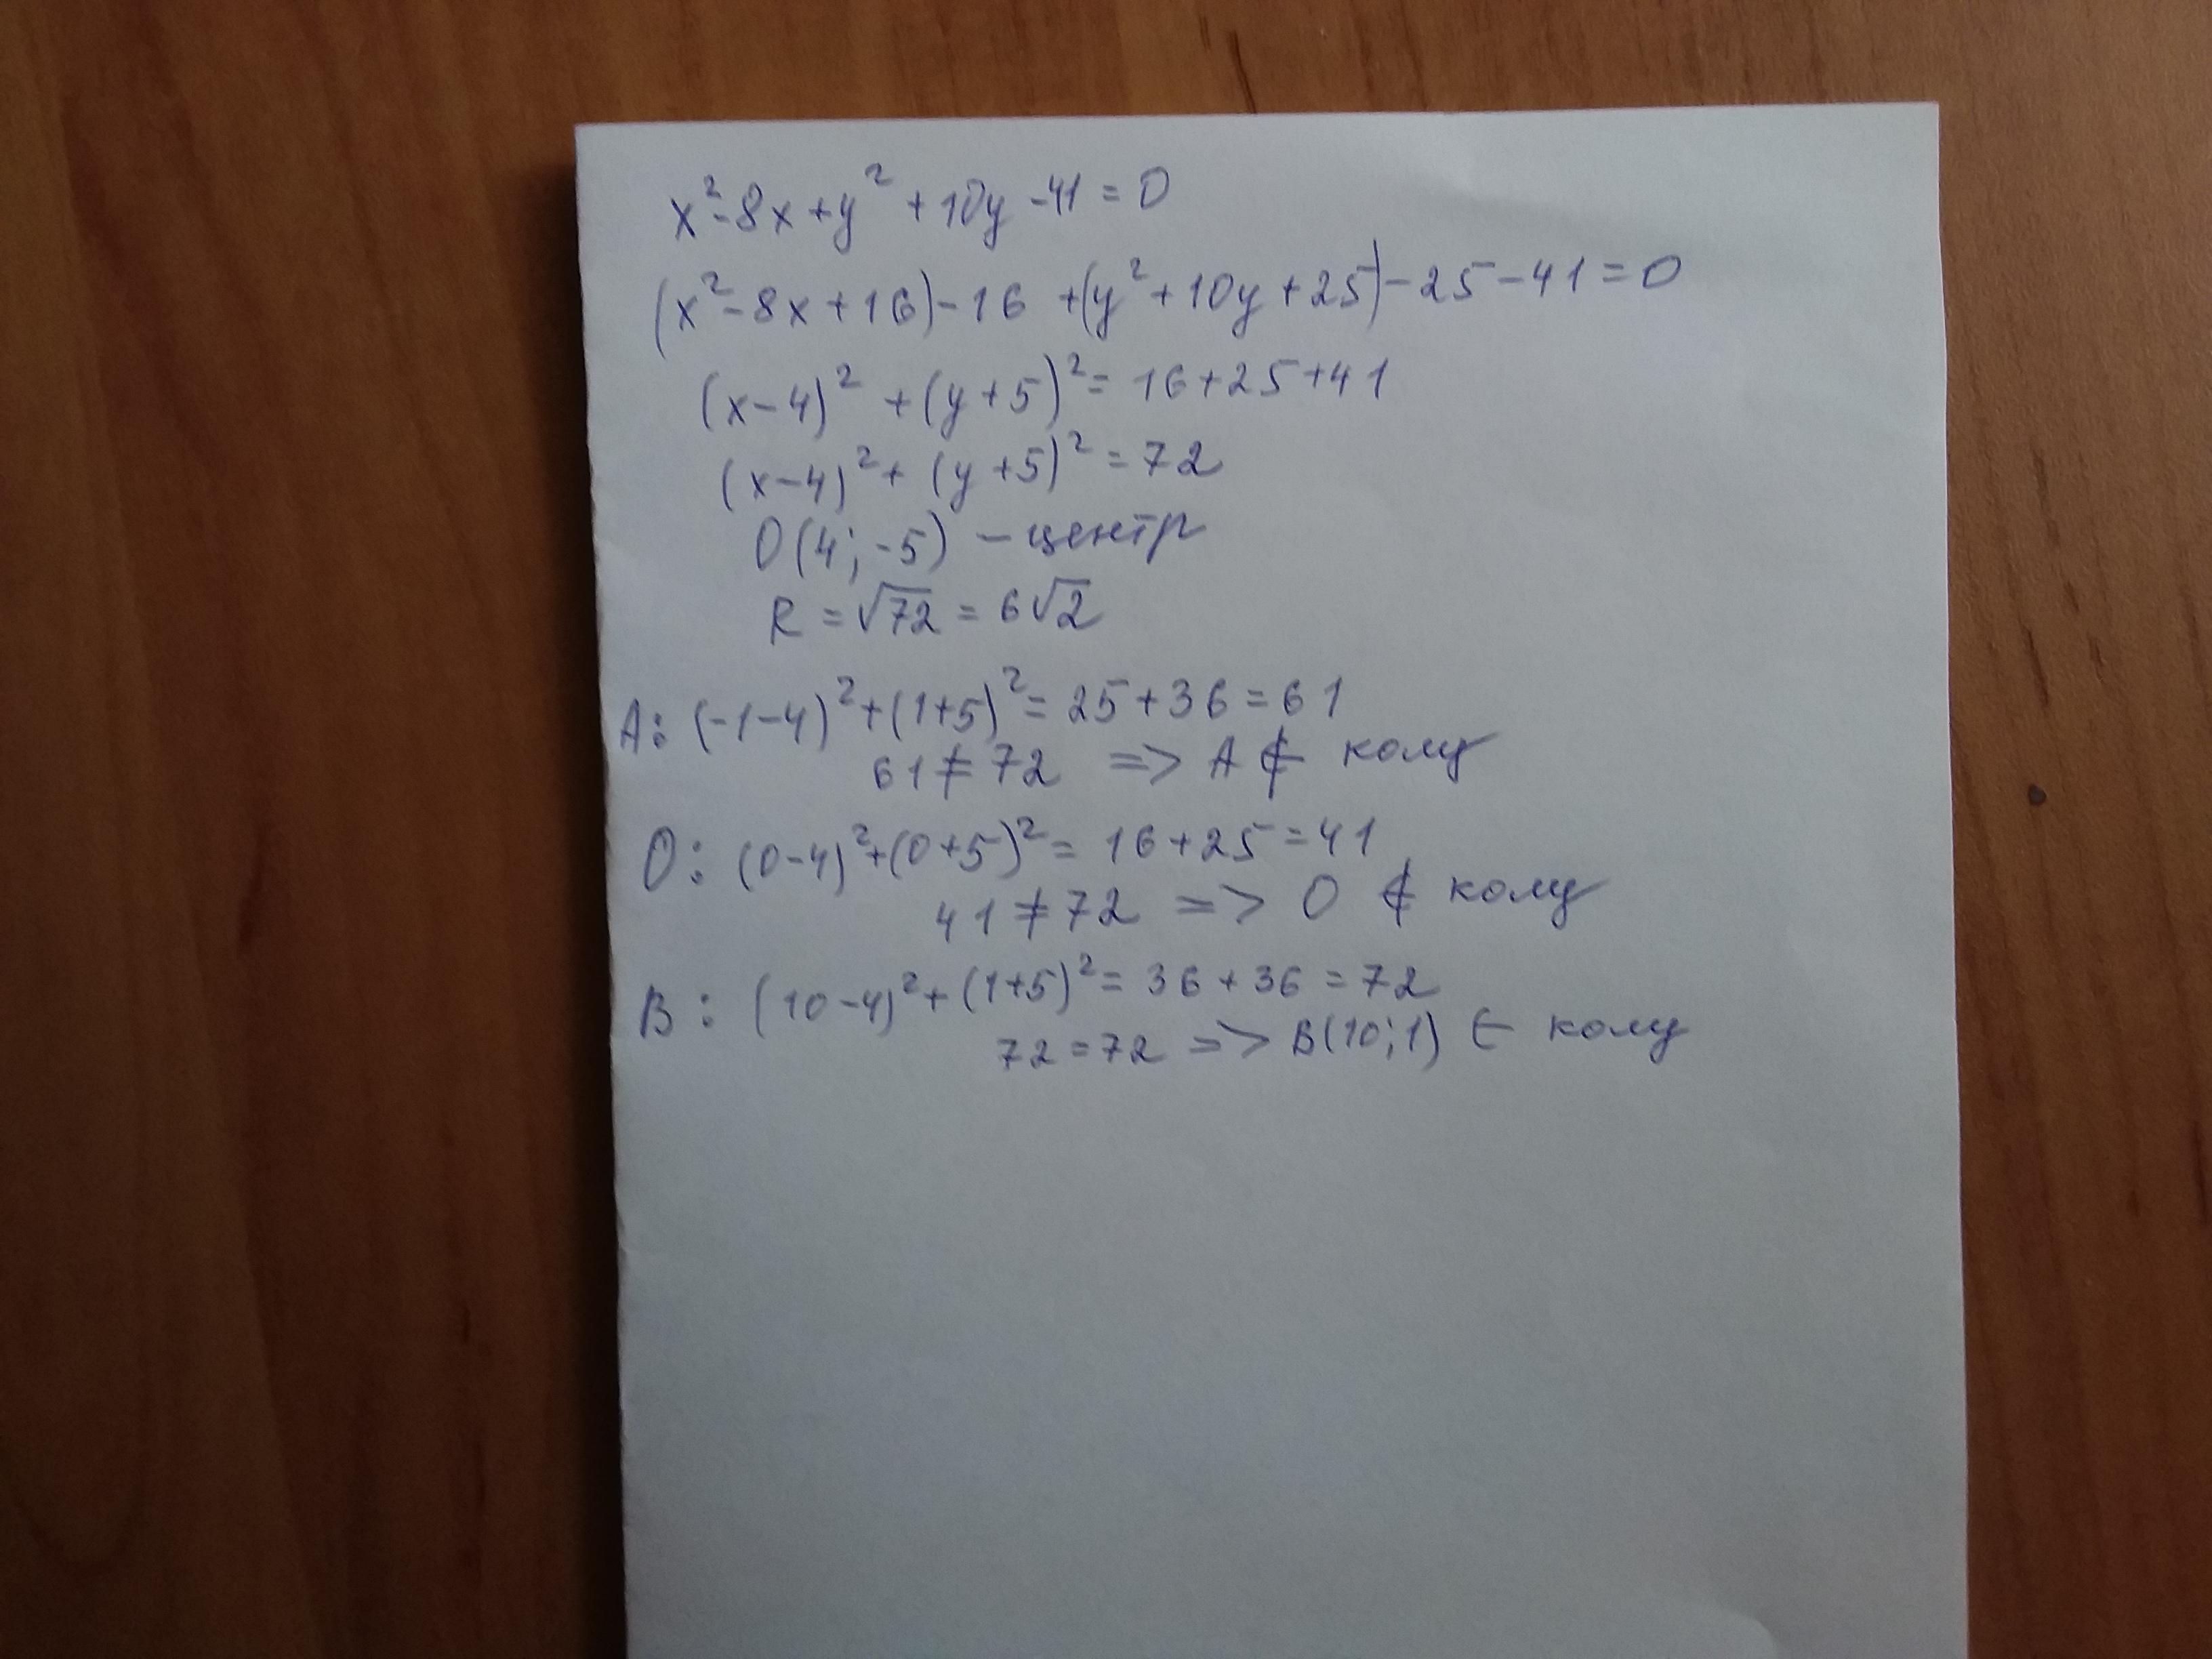 x²-8x+y²+10y-41=0
(x²-8x+16)-16+(y²+10y+25)-25-41=0
(x-4)²+(y+5)²=16+25+41
(x-4)²+(y+5)²=72
O(4;-5) - центр
R=√72=6√2
A: (-1-4)²+(1+5)²=25+36=61
61≠72 => A∉ колу
O: (0-4)²+(0+5)²=16+25=41
41≠72 => O ∉ колу
B: (10-4)²+(1+5)²=36+36=72
72=72 => B(10;1) ∈ колу